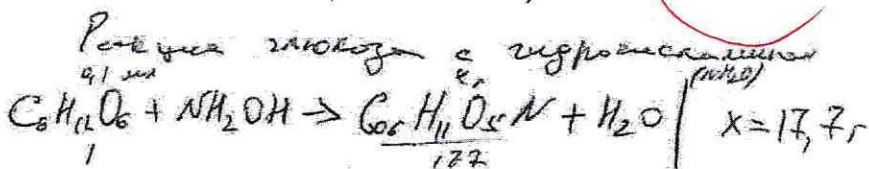 Реакция глюкозы с гидроксиламином
0,1 мл x г (NH₂O)
C₆H₁₂O₆ + NH₂OH → C₆H₁₁O₅N + H₂O | x = 17,7 г
1 177